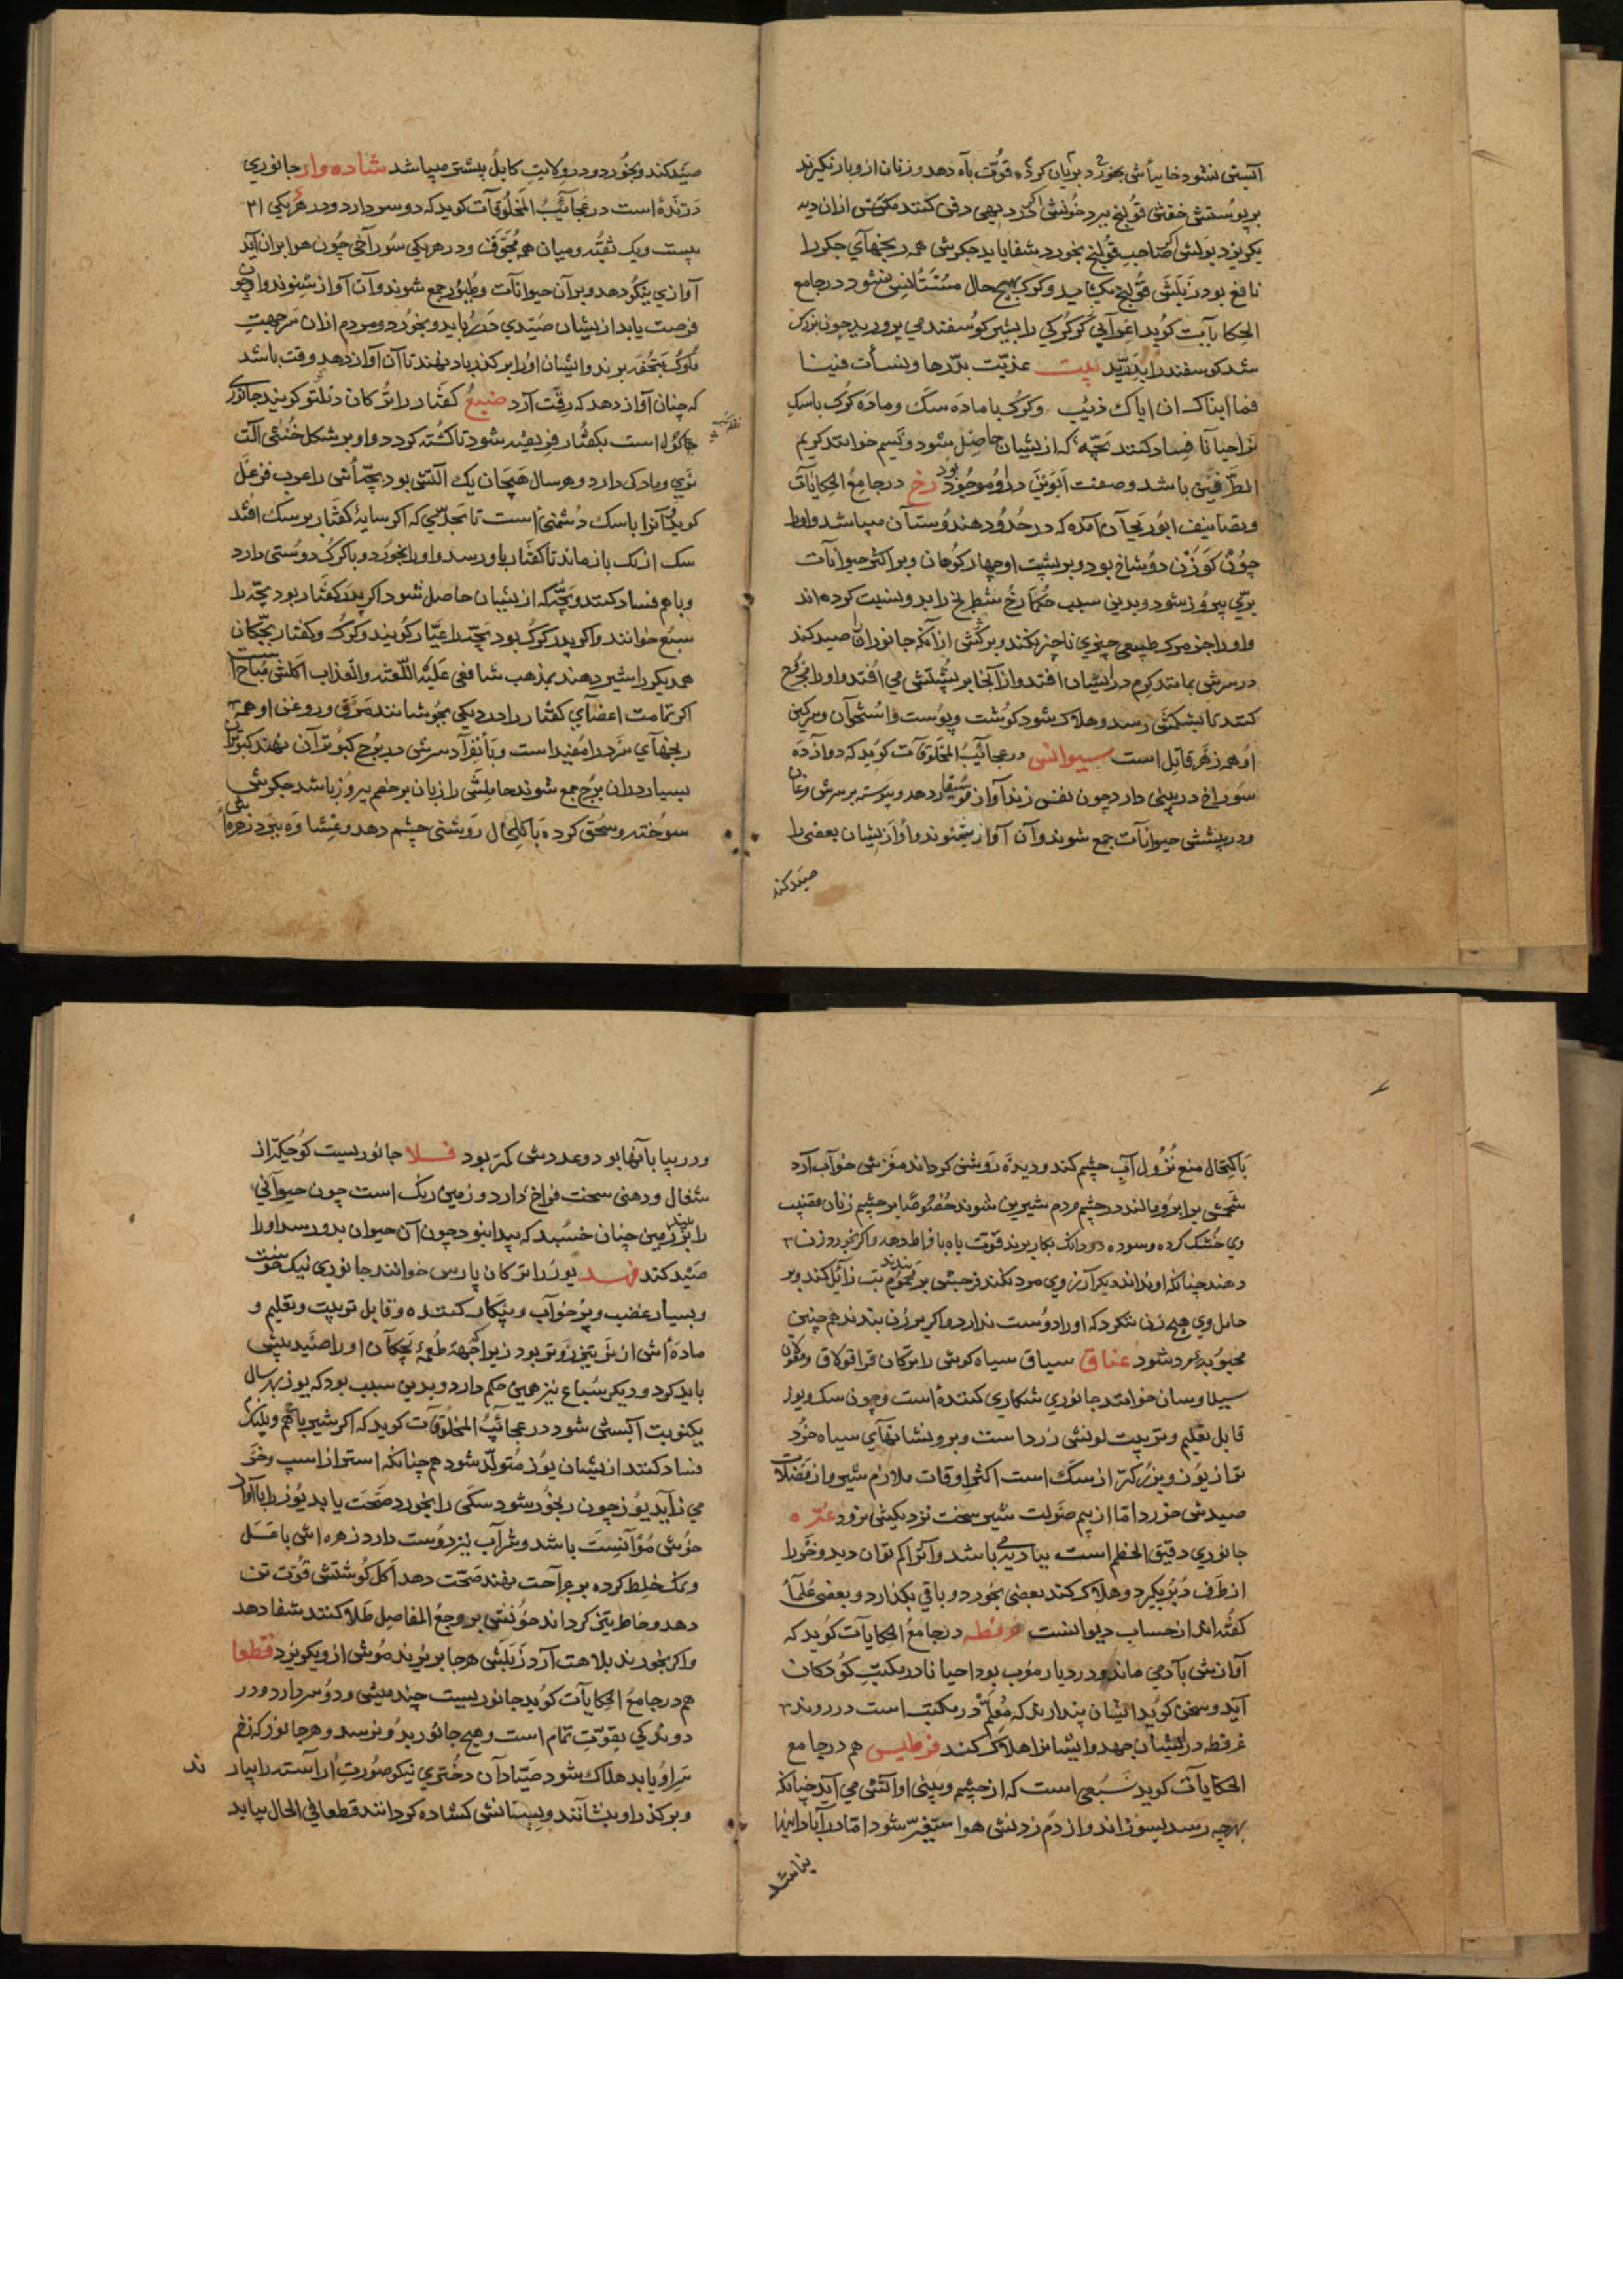 آبستن نشود خایه‌اش بخورد بریان کرده قوّت باه دهد و زنان ازو بار نگیرند
بر پوستش خفتن قولنج ببرد خونش اگر در دیهی دفن کنند مگس ازان دیه
بگریزد بولش اگر صاحب قولنج بخورد شفا یابد جگرش همه رنجهای جگر را
نافع بود زبلش قولنج بگشاید و گرگ بهیچ حال مستأنس نشود در جامع
الحکایات گوید اعرابی گرگکی را بشیر گوسفند می پرورید چون بزرگ
شد گوسفند را بدرّید بیت غذیت بدرها و نشأت فینا
فما انباک ان اباک ذئب و گرگ با ماده سگ و ماده گرگ با سگ
نر احیانا فساد کنند بچه که از یشان حاصل شود و یسم خوانند کریم
الطرفین باشد و صفت ابوین درو موجود بود رخ در جامع الحکایات
و تصانیف ابوریحان آمده که در حدود هندوستان میباشد و او را
چون گوزن دو شاخ بود و بر پشت او چهار کوهان و بر اکثر حیوانات
برّی پیروز شود و بدین سبب حکما رخ شطرنج را بدو نسبت کرده اند
و او را جز مرگ طبیعی چیزی ناچیز نکند و برکش از آنکه جانوران را صید کند
در سرش مانند کرم در ایشان افتد و از آنجا بر پشتش می افتد و او را مجروح
کنند تا بشکمش رسد و هلاک شود گوشت و پوست و استخوان و سرگین
او همه زهر قاتل است سیوانس در عجائب المخلوقات گوید که دوازده
سوراخ در بینی دارد چون نفس زند آواز موسیقار دهد و پیوسته بر سرش مرغان
و در پیشش حیوانات جمع شوند و آن آواز شنوند و او از یشان بعضی را
صید کند
صید کند و بخورد و در ولایت کابل بیشتر میباشد شاده وار جانوری
درنده است در عجائب المخلوقات گوید که دو سر دارد و در هر یکی ۳۱
بیست و یک ثقبه و میان همه مجوّف و در هر یکی سوراخی چون هوا بران آید
آوازی نیکو دهد و بر آن حیوانات و طیور جمع شوند و آن آواز شنوند و او چون
فرصت یابد از یشان صیدی در رباید و بخورد و مردم ازان سر جهت
ملوک بتحفه برند و ایشان او را بر گذر باد نهند تا آن آواز دهد و وقت باشد
که چنان آواز دهد که رقّت آرد ضبع کفتار را ترکان دنلتو گویند جانوری
است بکفتار فریفته شود تا کشته گردد و او بر شکل خنثی آلت
نری و مادگی دارد و هر سال هیجان یک آلتش بود بچّه‌اش را عرب فرعل
گوید و آنرا با سگ دشمنی است تا بحدّیی که اگر سایۀ کفتار بر سگ افتد
سگ از تک باز ماند تا کفتار باو رسد و او را بخورد و با گرگ دوستی دارد
و با هم فساد کنند و بچّه که از یشان حاصل شود اگر پدر کفتار بود بچّه را
سبع خوانند و اگر پدر گرگ بود بچّه را عیار گویند و گرگ و کفتار بچگان
همدیگر را شیر دهند بمذهب شافعی علیه اللعنه و العذاب اکلش مباح است
اگر تمامت اعضای کفتار را در دیگی بجوشانند مرق و روغن او همه
رنجهای سرد را مفید است و بانفراد سرش در برج کبوتران نهند کبوتران
بسیار دران برج جمع شوند حاملش را زیان بر خصم پیروز باشد جگرش
سوخته و سحق کرده با کلحال روشنی چشم دهد و غشاوه ببرد زهره‌اش
باکتحال منع نزول آب چشم کند و دیده روشن گرداند مغزش خواب آرد
شحمش بر ابرو مالند در چشم مردم شیرین شوند خصوصا بر چشم زنان قضیب
وی خشک کرده و سوده دو دانگ بکار برند قوّت باه بافراط دهد و اگر بخورد زن
دهند چنانکه او نداند دیگر آرزوی مرد نکند فرجش بر محموم بندند تب زائل کند و بر
حامل وی هیچ زن ننگرد که او را دوست ندارد و اگر بر زن بندند هم چنین
محبوب مرد شود عناق سیاق سیاه گوش را ترکان قراقولاق و مغول
سیلاوسان خوانند جانوری شکاری کننده است و چون سگ و یوز
قابل تعلیم و تربیت لونش زرد است و برو نشانهای سیاه خرد
تر از یوز و بزرگتر از سگ است اکثر اوقات ملازم شیر و از فضلات
صیدش خورد امّا از بیم صولت شیر سخت نزدیکش نرود عبره
جانوری دقیق الخطم است ببادیه می باشد و آنرا کم توان دید و خر را
از طرف دبر بگیرد و هلاک کند بعضی بخورد و باقی بگذارد و بعضی علما
گفته اند از حساب دیوانست غرفطه در جامع الحکایات گوید که
آوازش بآدمی ماند و در دیار مغرب بود احیانا در مکتب کودکان
آید و سخن گوید ایشان پندارند که معلّم در مکتب است در روند
غرفطه در ایشان جهد و ایشانرا هلاک کند فرطیس هم در جامع
الحکایات گوید سبعی است که از چشم و بینی او آتش می آید چنانکه
بهرچه رسد بسوزاند و از دم زدنش هوا متغیر شود امّا در آبادانیها
نباشد
و در بیابانها بود و عددش کمتر بود فلا جانوریست کوچکتر از
شغال و دهنی سخت فراخ دارد و زمین رنگ است چون حیوانی
را بیند بر زمین چنان خسبد که پیدا نبود چون آن حیوان بدو رسد او را
صید کند فهد یوز را ترکان پارس خوانند جانوری نیک سخت
و بسیار غضب و پر خواب و بیکار کننده و قابل تربیت و تعلیم و
ماده‌اش از نر تیز رو تر بود زیرا که جهة طعمۀ بچگان او را صید بیش
باید کرد و دیگر سباع نیز همین حکم دارد و بدین سبب بود که یوز بهر سال
یکنوبت آبستن شود در عجائب المخلوقات گوید که اگر شیر با هم و پلنگ
فساد کنند از یشان یوز متولّد شود هم چنانکه استر از اسپ و خر
می زاید یوز چون رنجور شود سگی را بخورد صحّت یابد یوز را با آواز
خوش مؤانست باشد و شراب نیز دوست دارد زهره اش با عسل
و نمک خلط کرده بر جراحت نهند صحّت دهد اکل گوشتش قوّت تن
دهد و خاطر تیز گرداند خونش بر وجع المفاصل طلا کنند شفا دهد
و اگر بخورند بلاهت آرد زبلش هر جا بریزند موش ازو بگریزد قطعا
هم در جامع الحکایات گوید جانوریست چند میش و دو سر دارد و در
دوندگی بقوّت تمام است و هیچ جانور بدو نرسد و هر جانور که زخم
سر او یابد هلاک شود صیادان دختری نیکو صورت آراسته را بیارند
و بر گذر او بنشانند و پستانش گشاده گردانند قطعا فی الحال بیاید